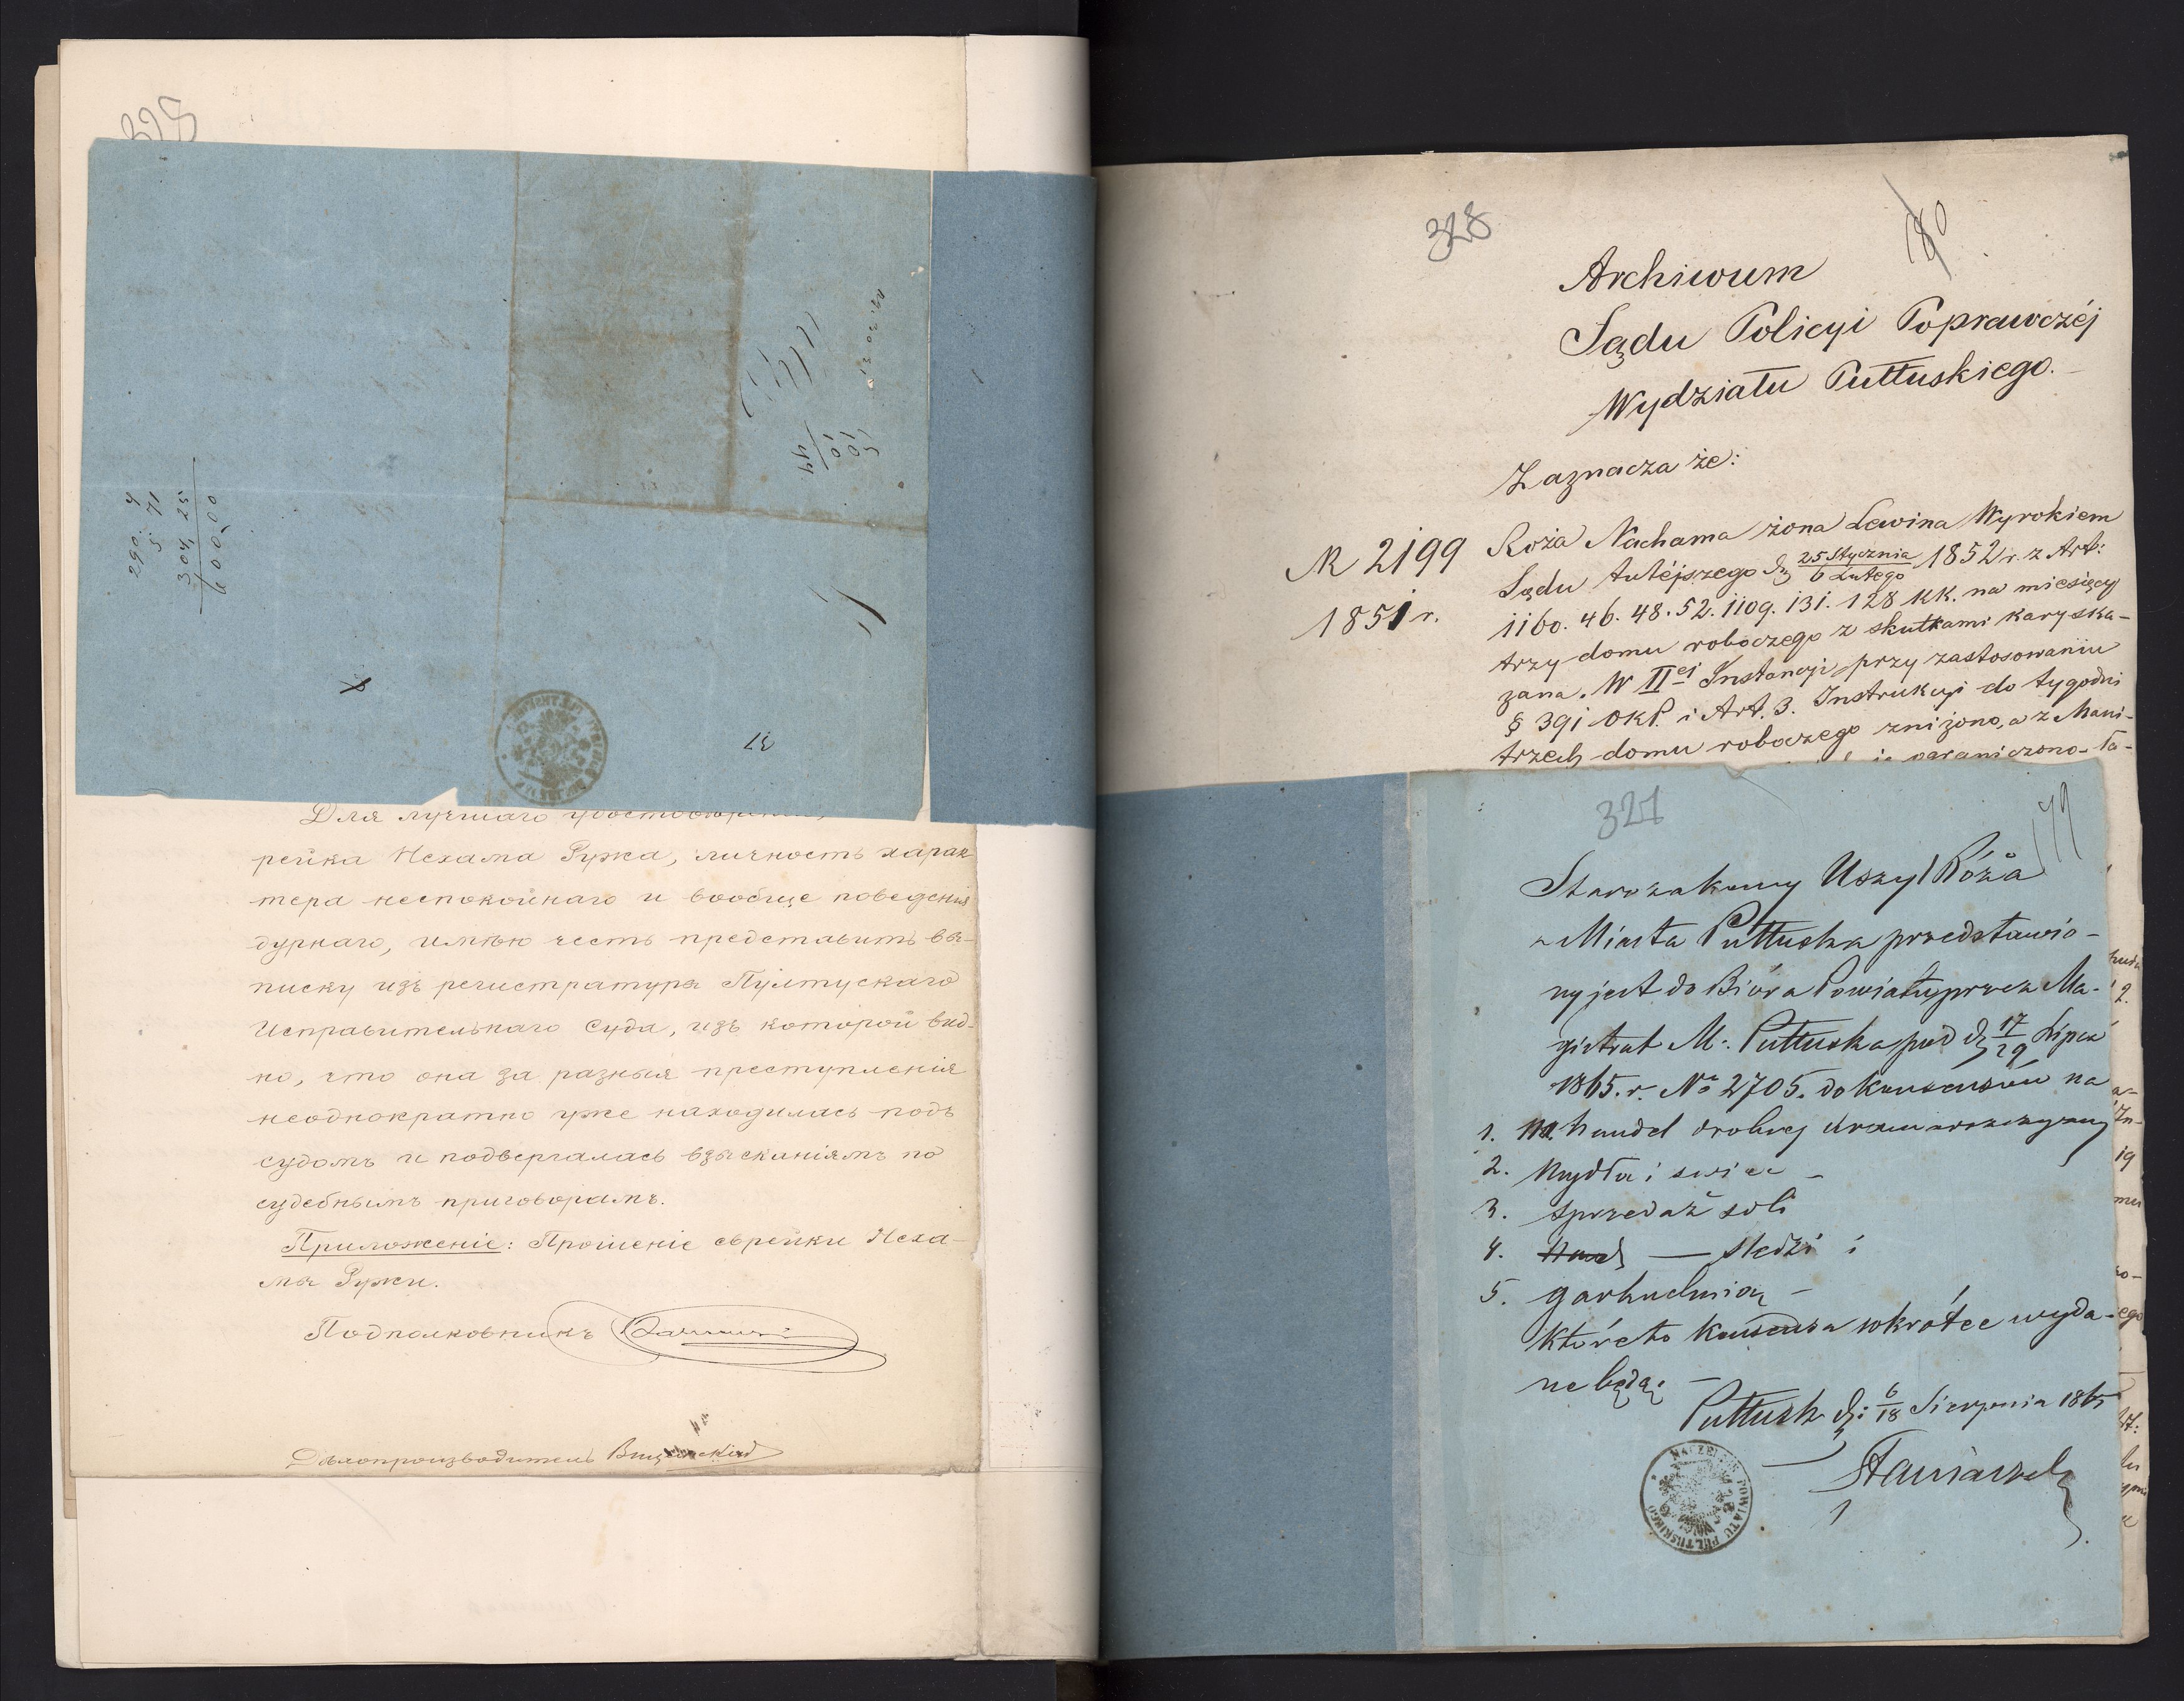 328
290. 4
5 71
304, 25
600,00
5
10
10
44
31
Для лучшаго
рейка Нехама Ружа, личность харак-
тера неспокойнаго и вообще поведенія
дурнаго, имѣю честь представить вы-
писку изъ регистратуры Пултускаго
Исправительнаго Суда, изъ которой вид-
но, что она за разныя преступленія
неоднократно уже находилась подъ
судомъ и подвергалась взысканіямъ по
судебнымъ приговорамъ.
Приложеніе: Прошеніе еврейки Неха-
мы Ружи.
Подполковникъ
Дѣлопроизводитель
328
180
Archiwum
Sądu Policyi Poprawczéj
Wydziału Pułtuskiego.
Zaznacza że:
N 2199
1851 r.
Roża Nachama żona Lewina Wyrokiem
Sądu tutéjszego d. 25 Stycznia / 6 Lutego 1852 r. z Art:
1160. 46. 48. 52. 1109. 131. 128 KK. na miesięcy
trzy domu roboczego z skutkami kary ska-
zana. W II ej Instancji przy zastosowaniu
§ 391 OKP. i Art. 3. Instrukcyi do tygodni
trzech domu roboczego zniżono, a z Mani-
ograniczono
327
179
Starozakonny Uszyl Róża
z Miasta Pułtuska przedstawio-
ny jest do Bióra Powiatu przez Ma-
gistrat M: Pułtuska pod d. 17/29 Lipca
1865. r. No 2705. do konsensów na
1. handel drobny kramarszczyzny
2. Mydła i swiec –
3. sprzedaż soli
4. Hand — sledzi i
5. garkuchnią –
któreto konsensa wkrótce wyda-
ne będą: –
Pułtusk d: 6/18 Sierpnia 1865
NACZELNIK POWIATU PUŁTUSKIEGO